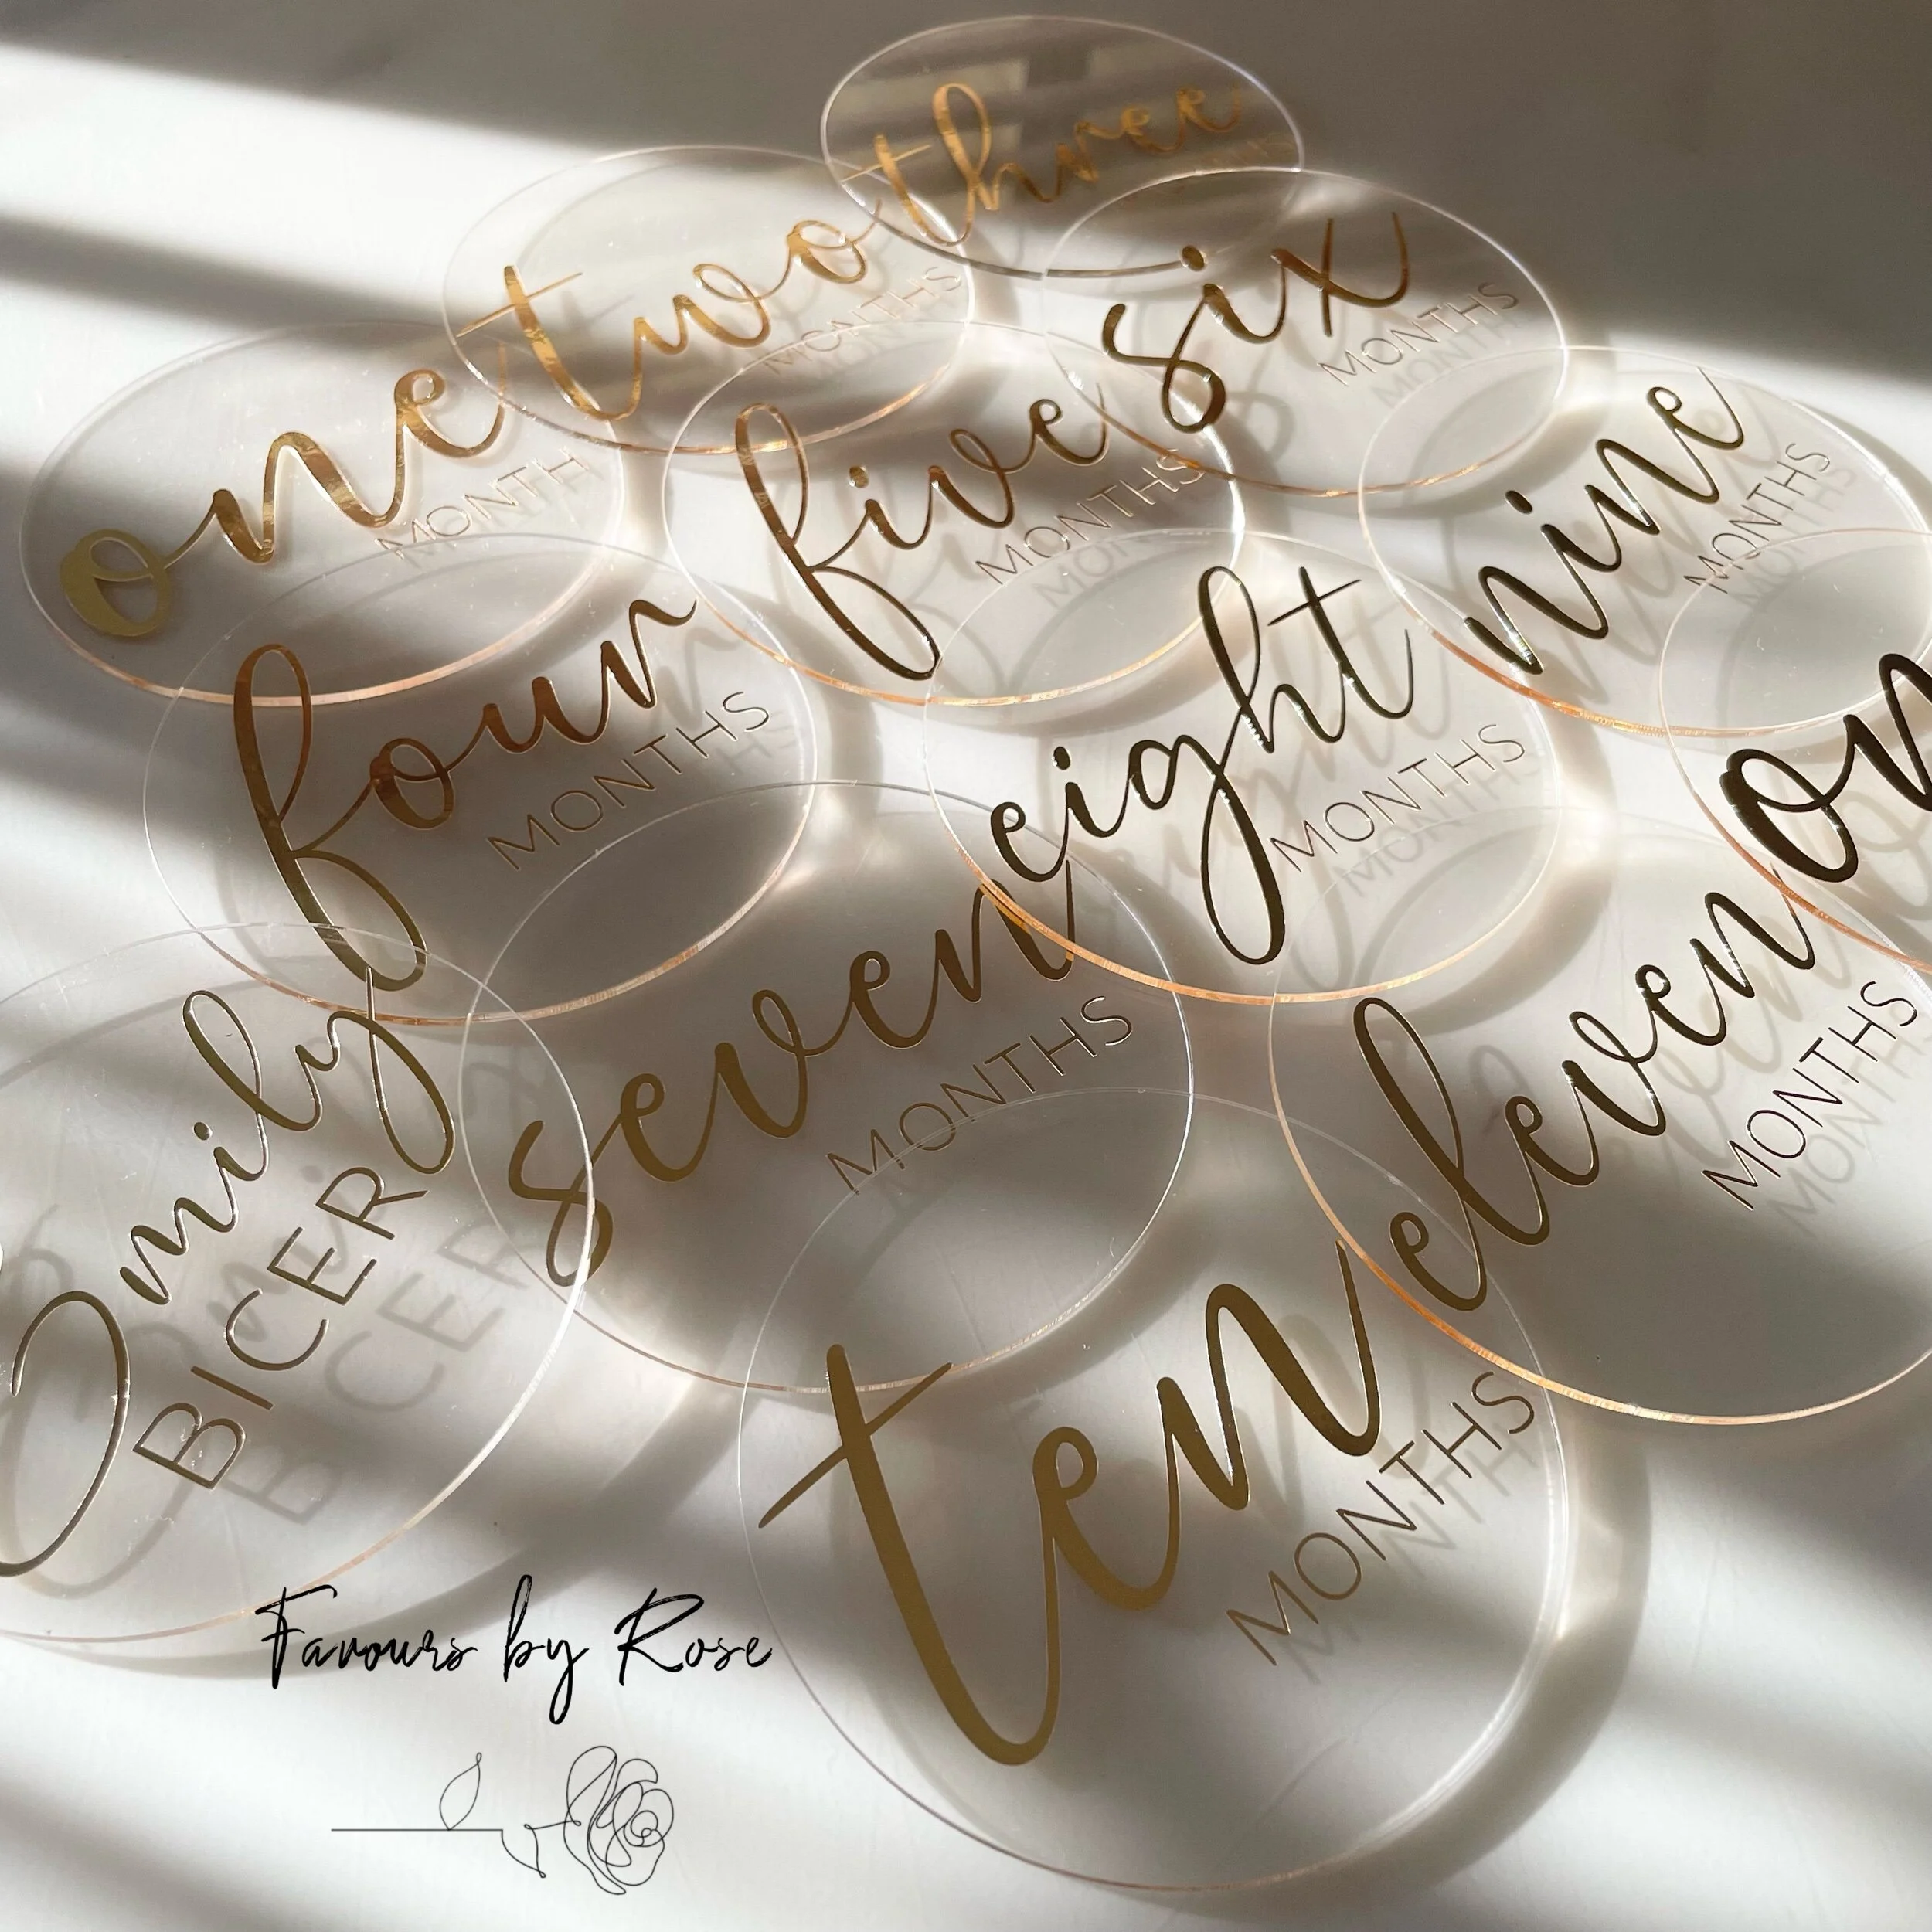 three
two
MONTHS
six
MONTHS
one
MONTH
five
MONTHS
nine
MONTHS
four
MONTHS
eight
MONTHS
on
seven
MONTHS
eleven
MONTHS
Emily
BICER
ten
MONTHS
Favours by Rose